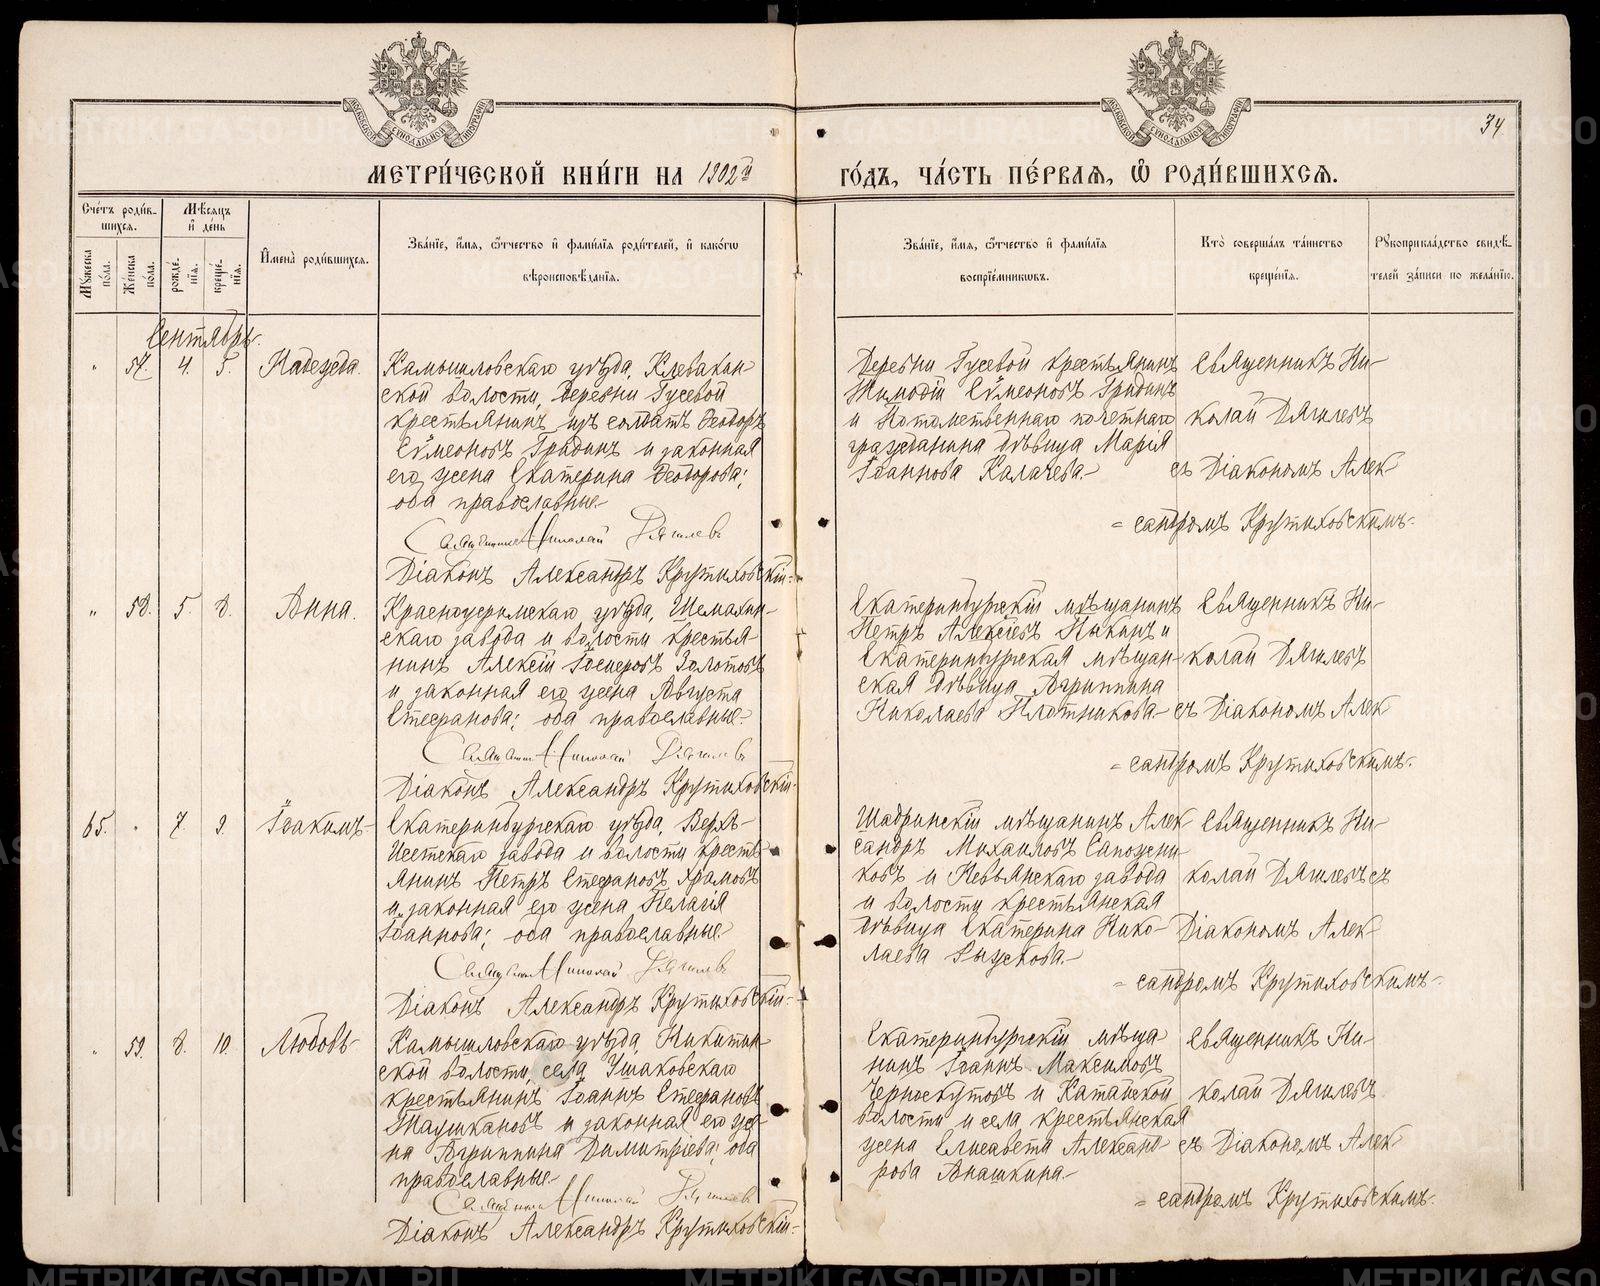 34
МЕТРИ́ЧЕСКОЙ КНИ́ГИ НА 1902й ГО́ДЪ, ЧА́СТЬ ПЕ́РВАЯ, Ѽ РОДИ́ВШИХСЯ.
Сче́тъ роди́вшихся.
Мѣ́сяцъ и҆ де́нь
Мꙋ́жеска по́ла.
Же́нска по́ла.
рожде́нїя.
креще́нїя.
И҆мена̀ роди́вшихся.
Зва́нїе, и҆́мя, ѻ҆́тчество и҆ фами́лїя роди́телей, и҆ како́гѡ
вѣроисповѣ́данїя.
Зва́нїе, и҆́мя, ѻ҆́тчество и҆ фами́лїя
воспрїе́мникѡвъ.
Кто̀ соверша́лъ та́инство
креще́нїя.
Рꙋкоприкла́дство свидѣ́-
телей за́писи по жела́нїю.
Сентябрь.
" 57. 4. 5. Надежда.
Камышловскаго уѣзда, Клевакин-
ской волости, деревни Гусевой
крестьянинъ изъ солдатъ Ѳеодоръ
Сѵмеоновъ Грядинъ и законная
его жена Екатерина Ѳеодорова;
оба православные.
Священникъ Николай Дягилевъ
Діаконъ Александръ Крутиховскій.
Деревни Гусевой крестьянинъ
Тимоѳій Сѵмеоновъ Грядинъ
и Потомственнаго почетнаго
гражданина дѣвица Марія
Іоаннова Калачева.
Священникъ Ни-
колай Дягилевъ
съ Діакономъ Алек-
= сандромъ Крутиховскимъ.
" 58. 5. 8. Анна.
Красноуфимскаго уѣзда, Шемахин-
скаго завода и волости крестья-
нинъ Алексій Госифовъ Золотовъ
и законная его жена Августа
Стефанова; оба православные.
Священникъ Николай Дягилевъ
Діаконъ Александръ Крутиховскій.
Екатеринбургскій мѣщанинъ
Петръ Алексѣевъ Ныкинъ и
Екатеринбургская мѣщан-
ская дѣвица Агриппина
Николаева Плотникова.
Священникъ Ни-
колай Дягилевъ
съ Діакономъ Алек
= сандромъ Крутиховскимъ.
65. " 7. 9. Іоакимъ
Екатеринбургскаго уѣзда, Верхъ-
Исетскаго завода и волости кресть-
янинъ Петръ Стефановъ Храмовъ
и законная его жена Пелагія
Іоаннова; оба православные.
Священникъ Николай Дягилевъ
Діаконъ Александръ Крутиховскій.
Шадринскій мѣщанинъ Алек
сандръ Михаиловъ Сапожни-
ковъ и Невьянскаго завода
и волости крестьянская
дѣвица Екатерина Нико-
лаева
Священникъ Ни-
колай Дягилевъ съ
Діакономъ Алек-
= сандромъ Крутиховскимъ.
" 59. 8. 10. Любовь
Камышловскаго уѣзда, Никитин-
ской волости, села Ушаковскаго
крестьянинъ Іоаннъ Стефановъ
и законная его же-
на Агриппина Димитріева; оба
православные.
Священникъ Николай Дягилевъ
Діаконъ Александръ Крутиховскій.
Екатеринбургскій мѣща
нинъ Іоаннъ Максимовъ
Черноскутовъ и Катайской
волости и села крестьянская
жена Елисавета Александ-
рова Анашкина.
Священникъ Ни-
колай Дягилевъ
съ Діакономъ Алек-
= сандромъ Крутиховскимъ.
METRIKI.GASO-URAL.RU